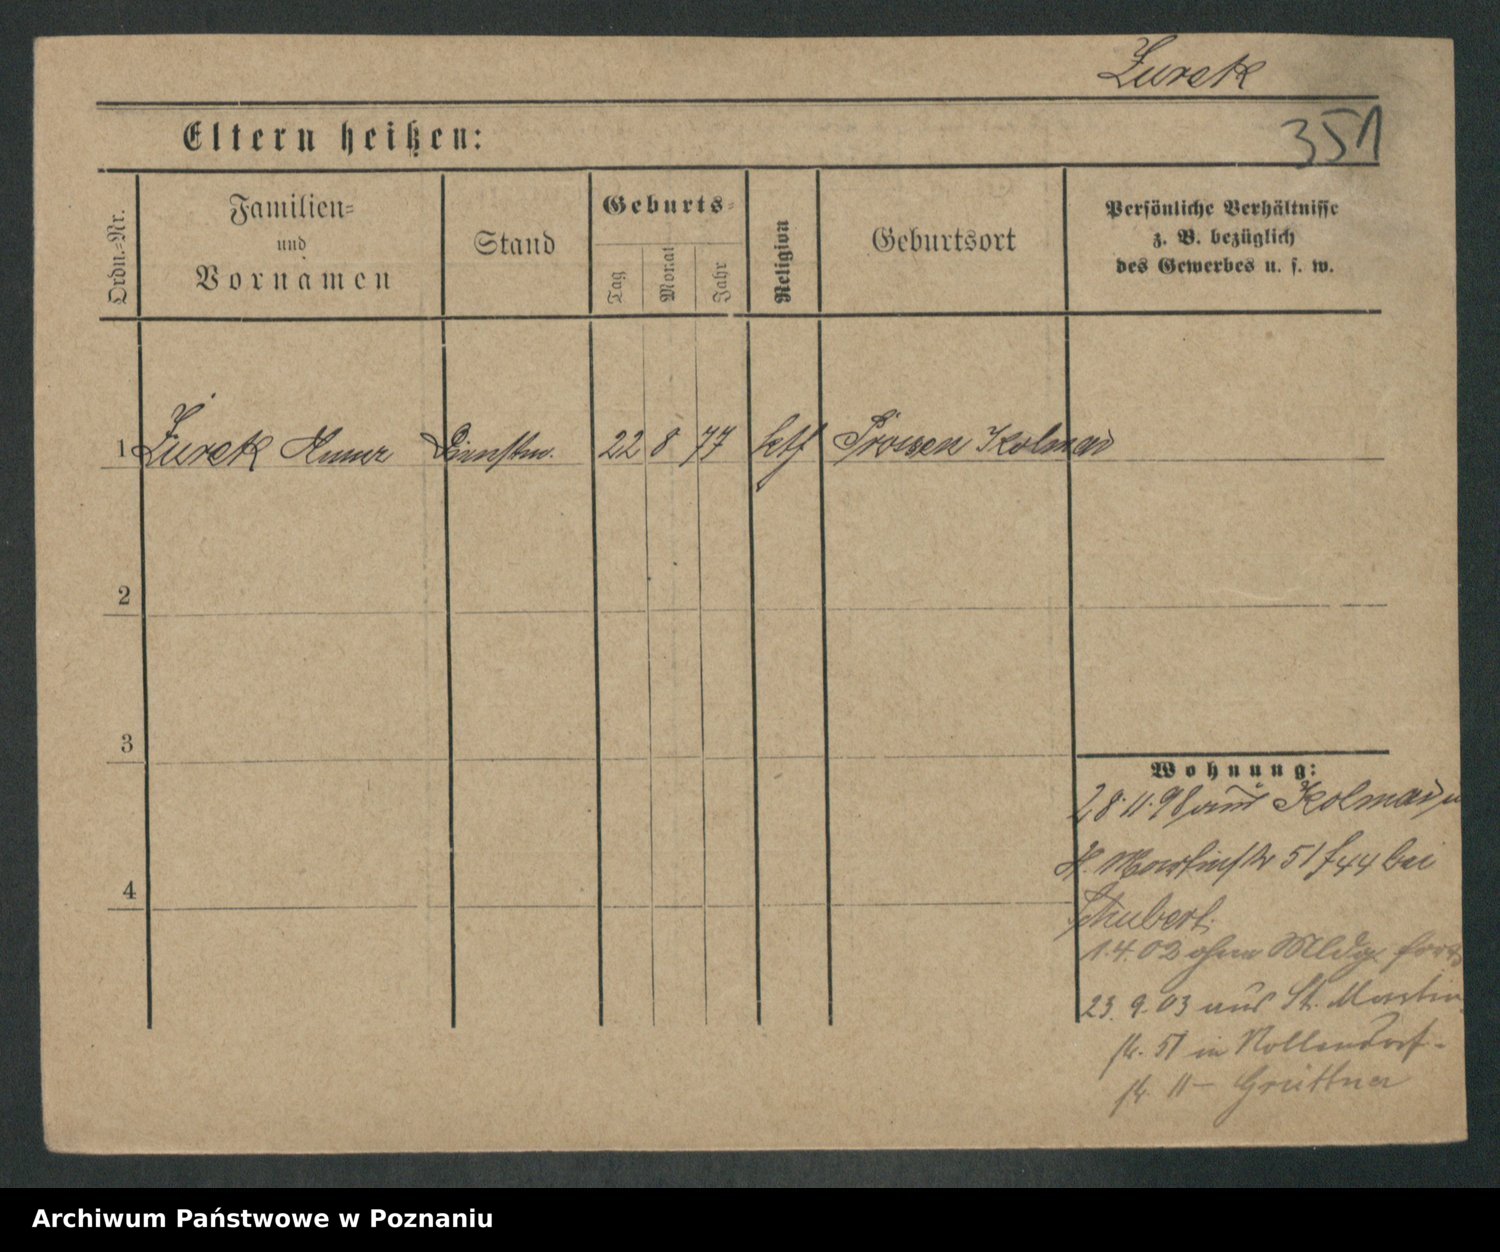 Zurek
Eltern heißen:
351
Ordn.-Nr.
Familien-
und
Vornamen
Stand
Geburts-
Tag
Monat
Jahr
Religion
Geburtsort
Persönliche Verhältnisse
z. B. bezüglich
des Gewerbes u. s. w.
1 Żurek Anna Dienstm. 22 8 77 kth Kolmar
2
3
4
Wohnung:
28.11.98 aus Kolmar
St. Martinstr 51 bei
Schubert.
1.4.02 ohne Mldg. fort
23.9.03 aus St. Martin
str. 51 in Nollendorf-
str. 11 - Grüttner
Archiwum Państwowe w Poznaniu